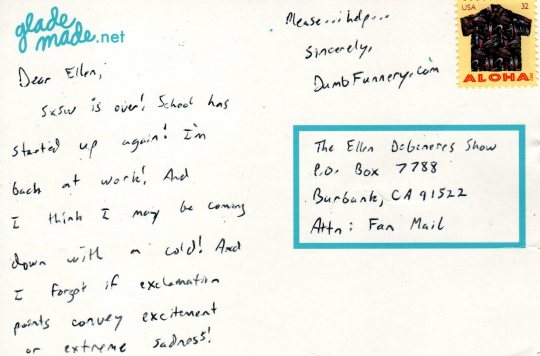 glade
made.net
Dear Ellen,
SXSW is over! School has
started up again! I'm
back at work! And
I think I may be coming
down with a cold! And
I forgot if exclamation
points convey excitement
or extreme sadness!
Please...help...
Sincerely,
DumbFunnery.com
USA 32
ALOHA
The Ellen DeGeneres Show
P.O. Box 7788
Burbank, CA 91522
Attn: Fan Mail